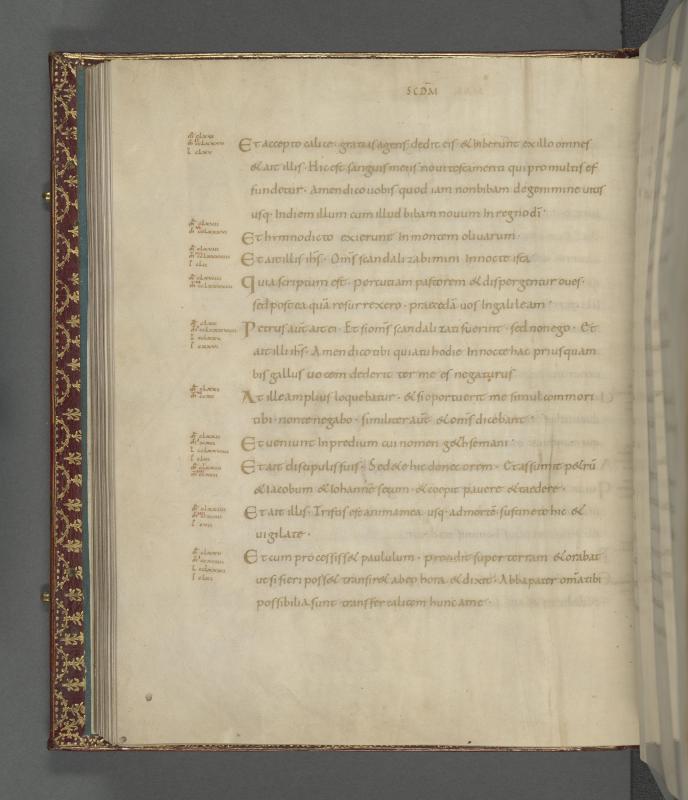 SCDM
Et accepto calice · gratias agens dedit eis & biberunt ex illo omnes
& ait illis · Hic est sanguis meus noui testamenti qui pro multis ef
fundetur · Amen dico uobis quod iam non bibam de genimine uitis
usq· In diem illum cum illud bibam nouum In regno dī ·
Et hymno dicto exierunt In montem oliuarum ·
Et ait illis ihs̄ · Om̄s scandalizabimini In nocte ista
Quia scriptum est · Percutiam pastorem & dispergentur oues ·
sed postea quā resurrexero · praecedā uos In galileam ·
Petrus aūt ait ei · Et si om̄s scandalizati fuerint · sed non ego · Et
ait illi ihs̄ · Amen dico tibi quia tu hodie In nocte hac priusquam
bis gallus uocem dederit ter me es negaturus
At ille amplius loquebatur · & si oportuerit me simul commori
tibi · non te negabo · similiter aūt & om̄s dicebant ·
Et ueniunt In predium cui nomen gethsemani ·
Et ait discipulis suis · Sedete hic donec orem · Et assumit p&rū
& Iacobum & Iohannē secum · & coepit pauere & taedere ·
Et ait illis · Tristis est anima mea usq· ad mortē · sustinete hic &
uigilate ·
Et cum processiss& paululum · procidit super terram & orabat
ut si fieri poss& transir& ab eo hora & dixit · Abba pater om̄a tibi
possibilia sunt transfer calicem hunc a me ·